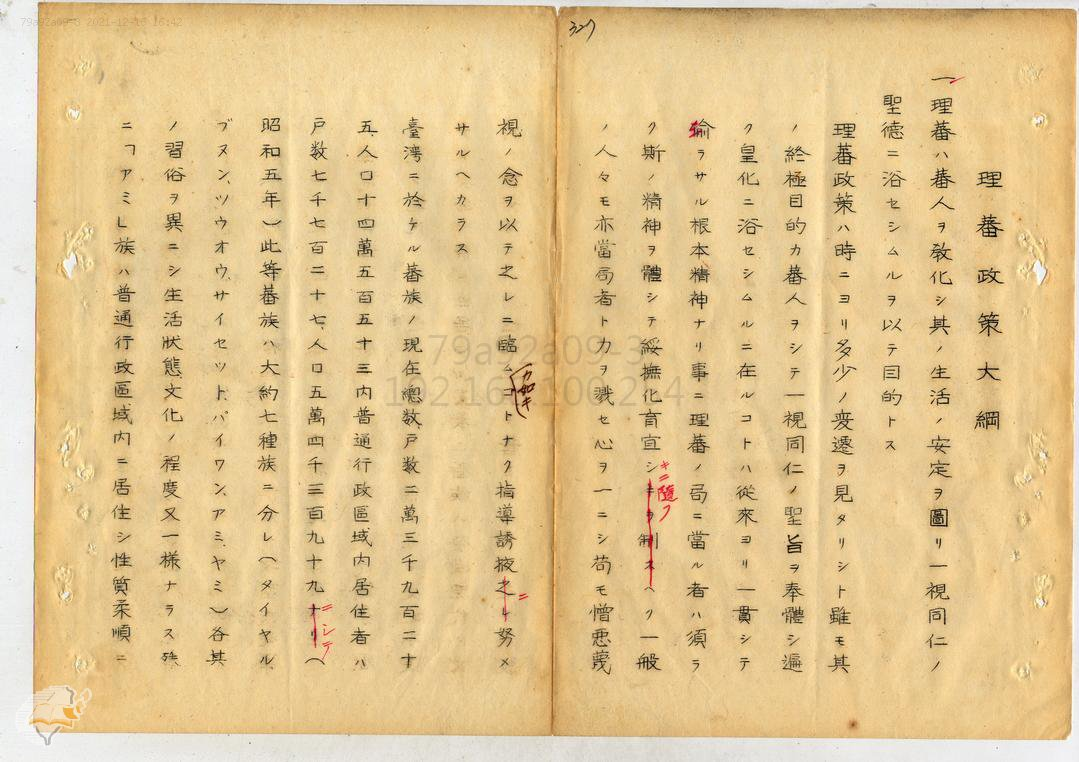 79a92a09-3 2021-12-16 16:42
327
理蕃政策大綱
一理蕃ハ蕃人ヲ敎化シ其ノ生活ノ安定ヲ圖リ一視同仁ノ
聖德ニ浴セシムルヲ以テ目的トス
理蕃政策ハ時ニヨリ多少ノ変遷ヲ見タリシト雖モ其
ノ終極目的カ蕃人ヲシテ一視同仁ノ聖旨ヲ奉體シ遍
ク皇化ニ浴セシムルニ在ルコトハ從來ヨリ一貫シテ
渝ラサル根本精神ナリ事ニ理蕃ノ局ニ當ル者ハ須ラ
ク斯ノ精神ヲ體シテ綏撫化育宜シキヲ制スヘク一般
キニ隨フ
ノ人々モ亦當局者ト力ヲ戮セ心ヲ一ニシ苟モ憎悪蔑
視ノ念ヲ以テ之レニ臨ムコトナク指導誘掖之レ努メ
カ如キ
ニ
サルヘカラス
臺灣ニ於ケル蕃族ノ現在總数、戸数二萬三千九百二十
五、人口十四萬五百五十三内普通行政區域内居住者ハ
戸数七千七百二十七、人口五萬四千三百九十九ナリ（
ニシテ
昭和五年）此等蕃族ハ大約七種族ニ分レ（タイヤル、
ブヌン、ツウオウ、サイセツト、パイワン、アミ、ヤミ）各其
ノ習俗ヲ異ニシ生活狀態、文化ノ程度又一様ナラス殊
ニ「アミ」族ハ普通行政區域内ニ居住シ性質柔順ニ
79a92a09-3